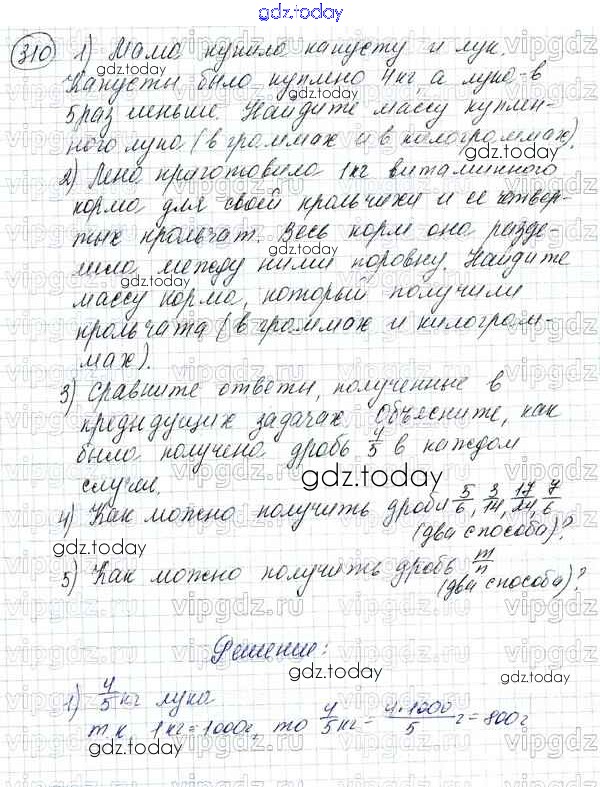 gdz.today
310 1) Мама купила капусту и лук.
Капусты было куплено 4кг, а лука-в
5 раз меньше. Найдите массу куплен-
ного лука (в граммах и в килограммах).
2) Лена приготовила 1кг витаминного
корма для своей крольчихи и её четвер-
тых крольчат. Весь корм она разде-
лила между ними поровну. Найдите
массу корма, который получили
крольчата (в граммах и килограм-
мах).
3) Сравните ответы, полученные в
предыдущих задачах. Объясните, как
была получена дробь 4/5 в каждом
случае.
4) Как можно получить дроби 5/6, 3/14, 17/24, 7/6
(два способа)?
5) Как можно получить дробь m/n
(два способа)?
Решение:
1) 4/5 кг лука
т.к. 1кг=1000г, то 4/5 кг = 4·1000/5 г = 800г